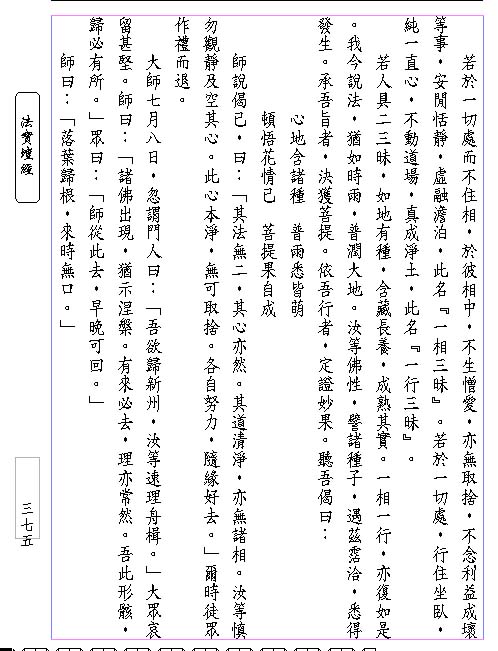 若於一切處而不住相，於彼相中，不生憎愛，亦無取捨，不念利益成壞
等事，安閒恬靜，虛融澹泊，此名『一相三昧』。若於一切處，行住坐臥，
純一直心，不動道場，真成淨土，此名『一行三昧』。
若人具二三昧，如地有種，含藏長養，成熟其實。一相一行，亦復如是
。我今說法，猶如時雨，普潤大地。汝等佛性，譬諸種子，遇茲霑洽，悉得
發生。承吾旨者，決獲菩提。依吾行者，定證妙果。聽吾偈曰：
心地含諸種　普雨悉皆萌
頓悟花情已　菩提果自成
師說偈已，曰：「其法無二，其心亦然。其道清淨，亦無諸相。汝等慎
勿觀靜及空其心。此心本淨，無可取捨。各自努力，隨緣好去。」爾時徒眾
作禮而退。
大師七月八日，忽謂門人曰：「吾欲歸新州，汝等速理舟楫。」大眾哀
留甚堅。師曰：「諸佛出現，猶示涅槃。有來必去，理亦常然。吾此形骸，
歸必有所。」眾曰：「師從此去，早晚可回。」
師曰：「落葉歸根，來時無口。」
法寶壇經
三七五